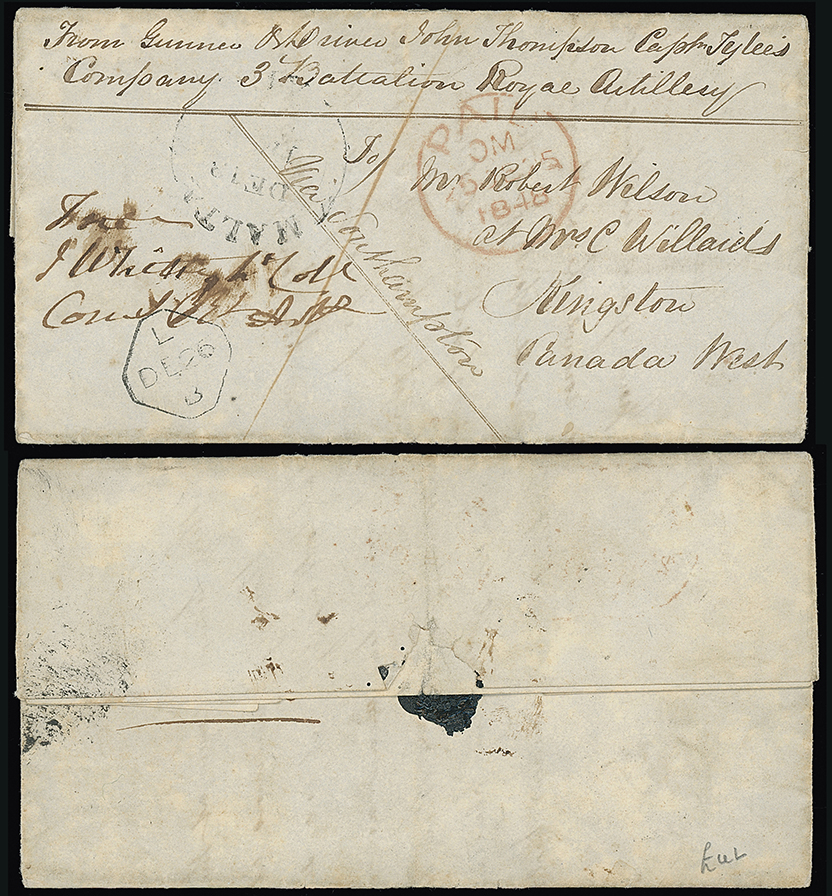 From Gunner & Driver John Thompson Captn Tylee's
Company 3 Battalion Royal Artillery
To
Mr Robert Wilson
at Mrs C Willards
Kingston
Canada West
via Southampton
Free
Col
Comd Art
MALTA
DE
PAID
OM
25 25
1848
L
DE 26
B